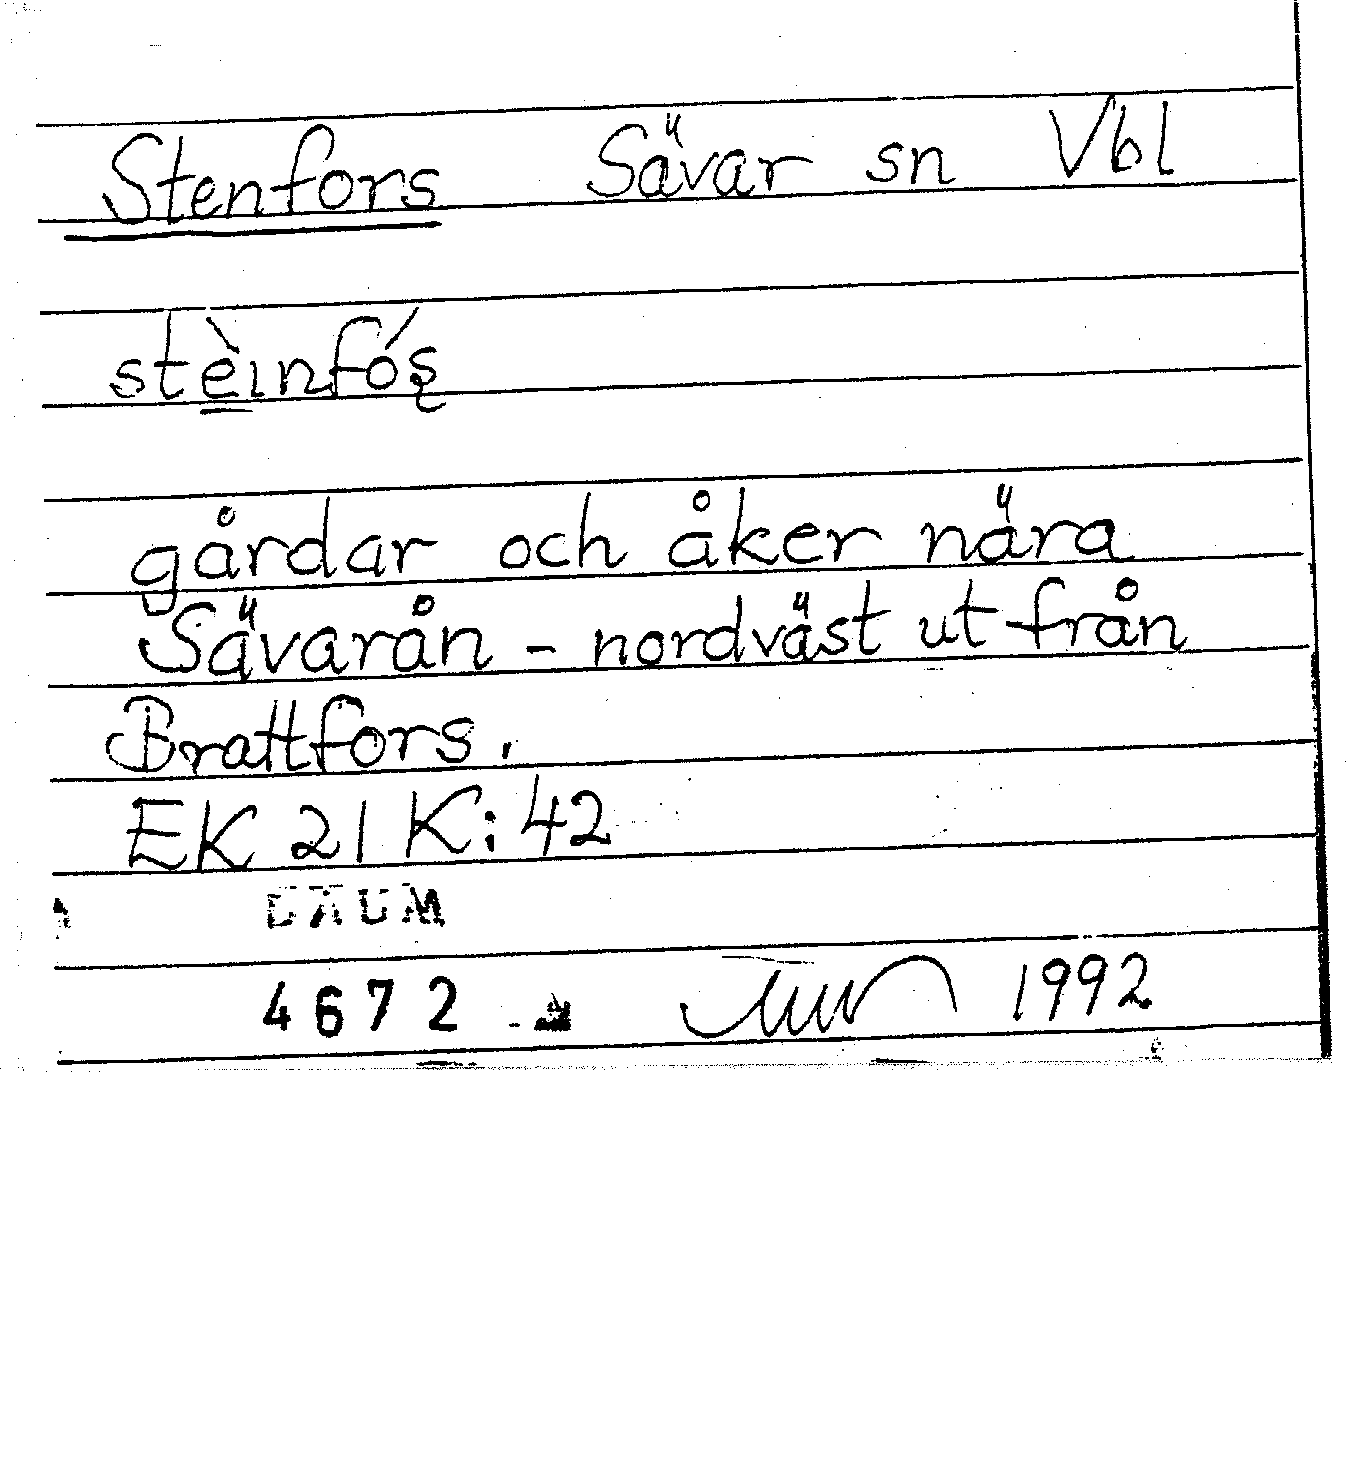 Stenfors Sävar sn Vbl
stèinfóş
gårdar och åker nära
Sävarån - nordväst ut från
Brattfors.
EK 21 K:42
DAUM
4672 1992